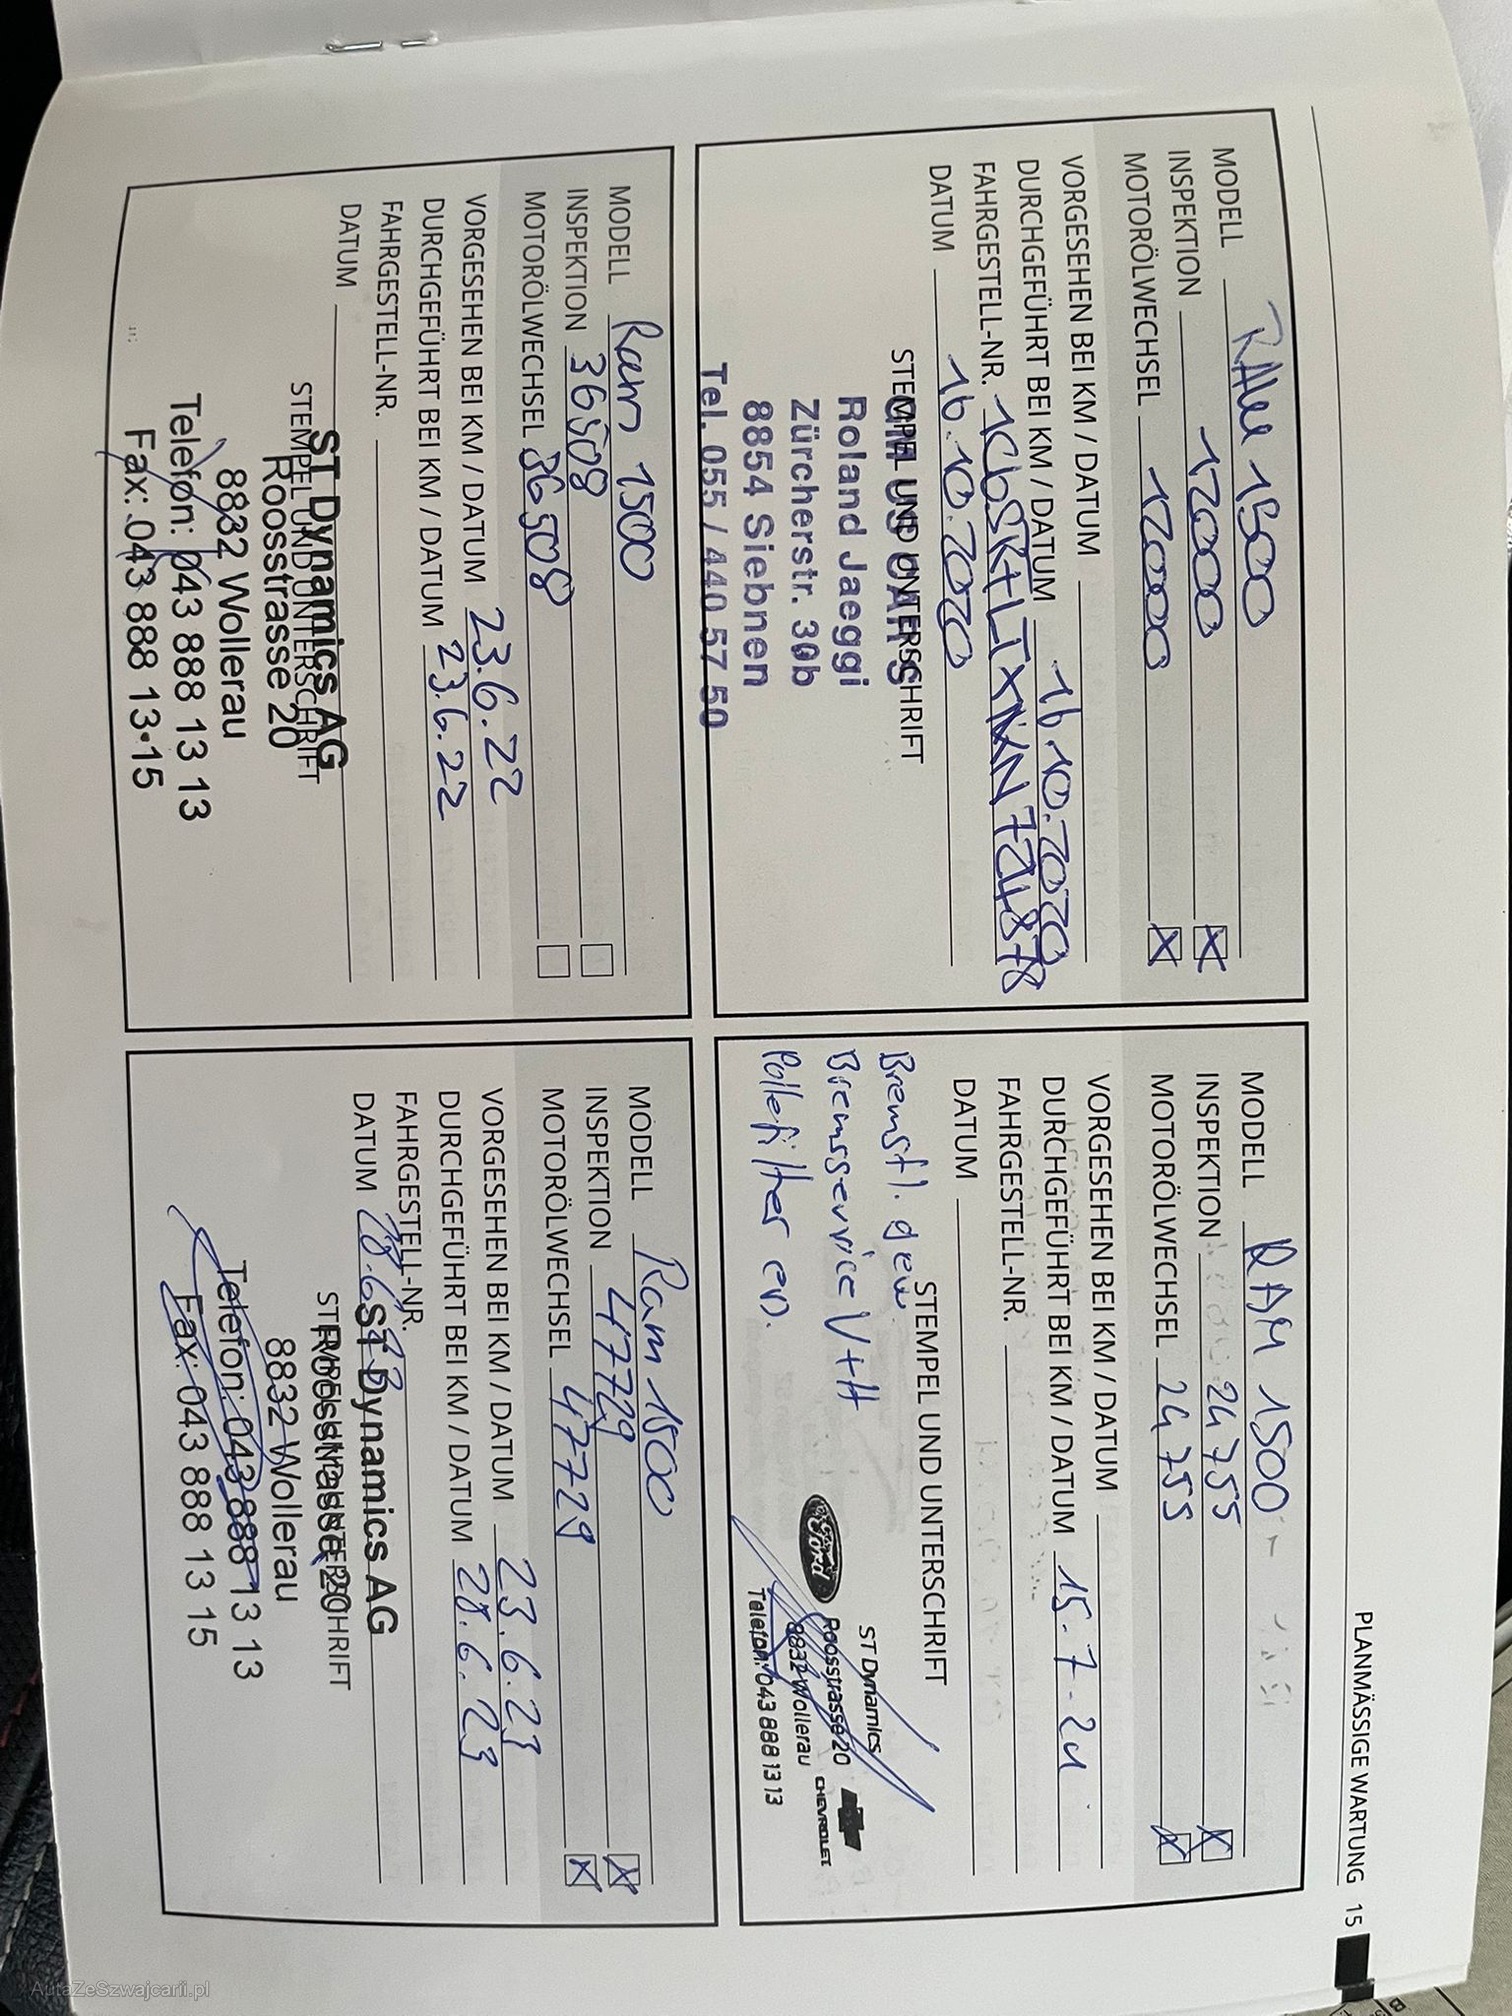 PLANMÄSSIGE WARTUNG 15
MODELL RAM 1500
INSPEKTION 12000 X
MOTORÖLWECHSEL 12000 X
VORGESEHEN BEI KM / DATUM
DURCHGEFÜHRT BEI KM / DATUM 16.10.2020
FAHRGESTELL-NR.
DATUM 16.10.2020
STEMPEL UND UNTERSCHRIFT
Roland Jaeggi
Zürcherstr. 30b
8854 Siebnen
Tel. 055 / 440 57 50
MODELL RAM 1500
INSPEKTION 24755 X
MOTORÖLWECHSEL 24755 X
VORGESEHEN BEI KM / DATUM
DURCHGEFÜHRT BEI KM / DATUM 15.7.21
FAHRGESTELL-NR.
DATUM
STEMPEL UND UNTERSCHRIFT
Bremsfl. gew.
Bremsservice V+H
Pollefilter er.
Ford
ST Dynamics
Roosstrasse 20
8832 Wollerau
Telefon: 043 888 13 13
CHEVROLET
MODELL Ram 1500
INSPEKTION 36508
MOTORÖLWECHSEL 36508
VORGESEHEN BEI KM / DATUM 23.6.22
DURCHGEFÜHRT BEI KM / DATUM 23.6.22
FAHRGESTELL-NR.
DATUM
STEMPEL UND UNTERSCHRIFT
ST Dynamics AG
Roosstrasse 20
8832 Wollerau
Telefon: 043 888 13 13
Fax: 043 888 13 15
MODELL Ram 1500
INSPEKTION 47729 X
MOTORÖLWECHSEL 47729 X
VORGESEHEN BEI KM / DATUM 23.6.23
DURCHGEFÜHRT BEI KM / DATUM 28.6.23
FAHRGESTELL-NR.
DATUM 28.6.23
STEMPEL UND UNTERSCHRIFT
ST Dynamics AG
Roosstrasse 20
8832 Wollerau
Telefon: 043 888 13 13
Fax: 043 888 13 15
AutaZeSzwajcarii.pl